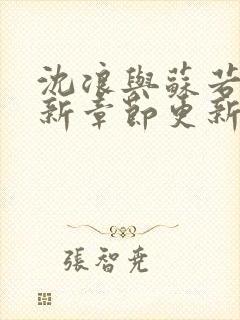 沈浪與蘇若
新章節更新
張智尭